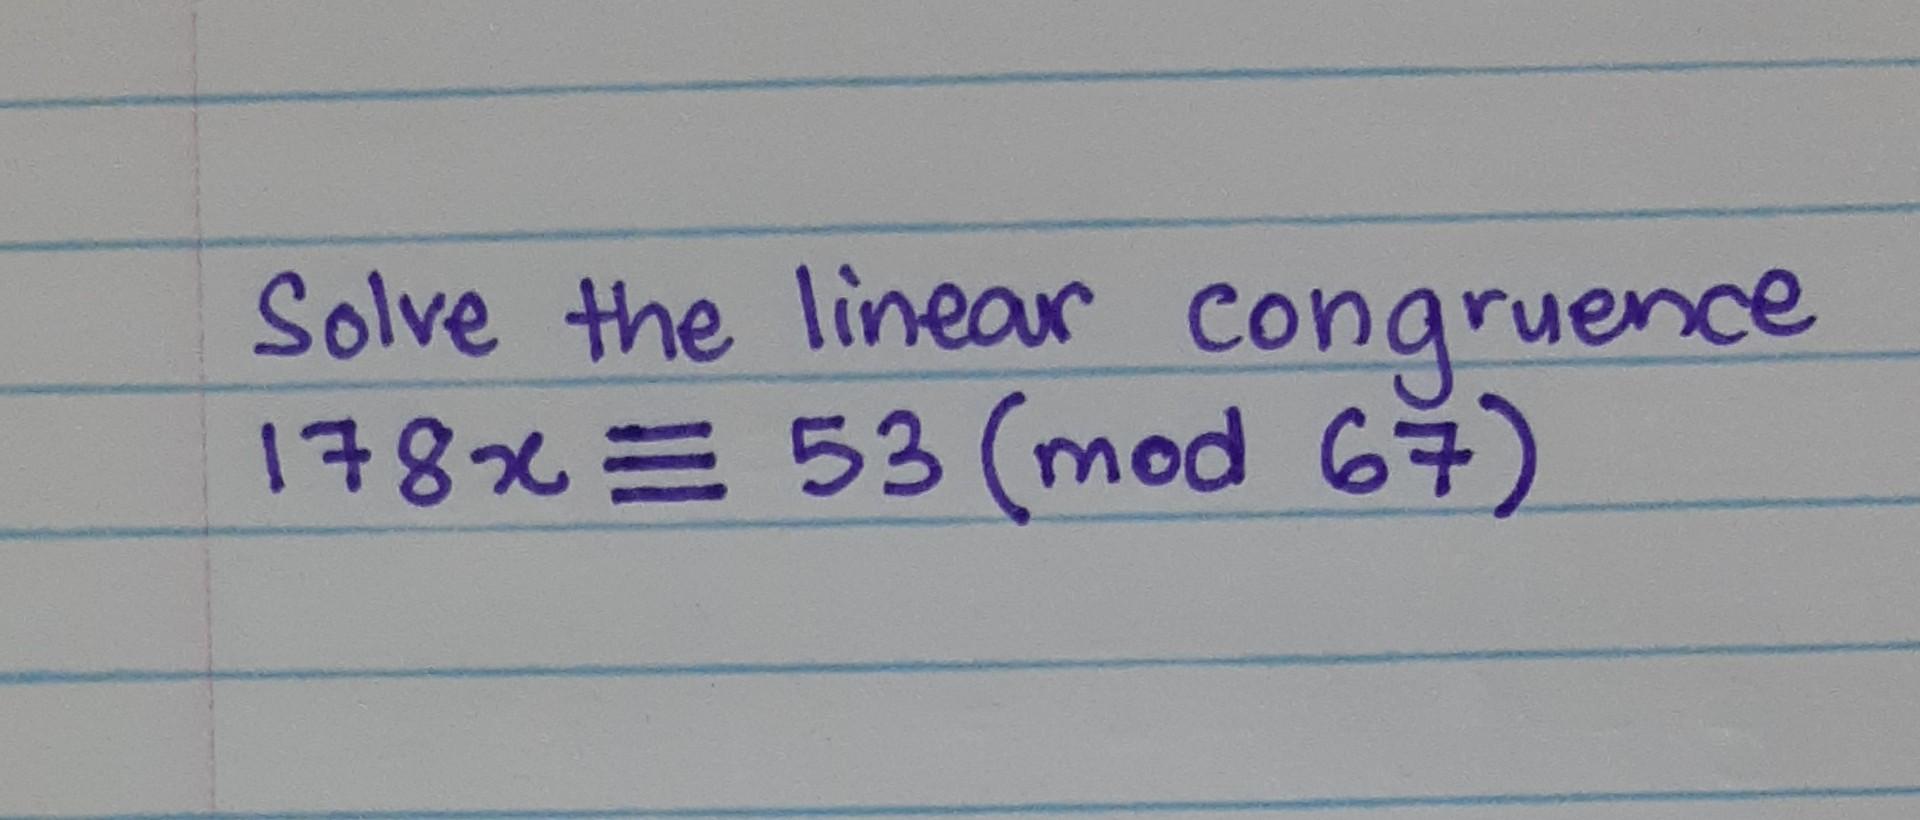 Solve the linear congruence
178x ≡ 53 (mod 67)